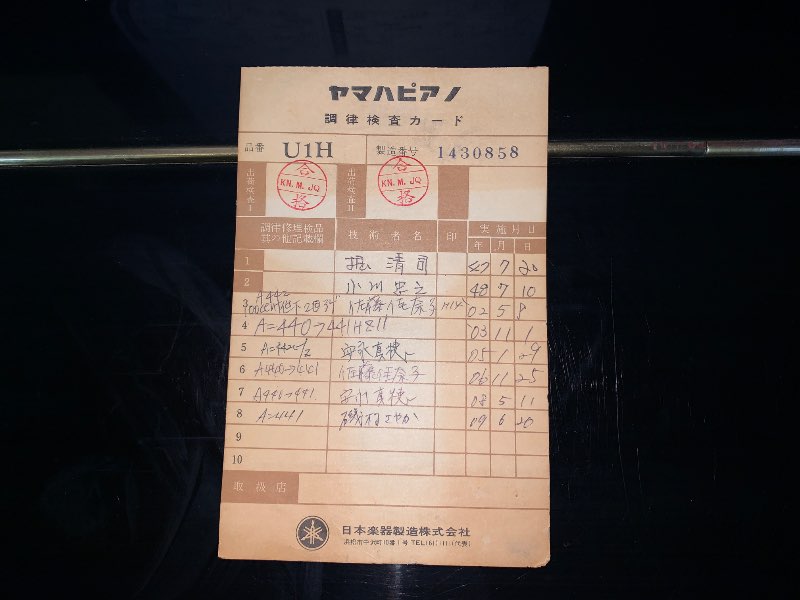 ヤマハピアノ
調律検査カード
品番 U1H 製造番号 1430858
出荷検査I 合格 KN.M.JQ 出荷検査II 合格 KN.M.JQ
調律修理検品其の他記載欄 技術者名 印 実施月日
年 月 日
1 堀 清司 47 7 20
2 小川 忠之 48 7 10
A442
3 佐藤佳奈子 02 5 8
4 A=440→441Hz 03 11 1
5 真穂 05 1 29
6 佐藤佳奈子 06 11 25
7 A440→441 真穂 08 5 11
8 A=441 磯村さやか 09 6 20
9
10
取扱店
日本楽器製造株式会社
浜松市中沢町10番1号 TEL(61)1111(代表)